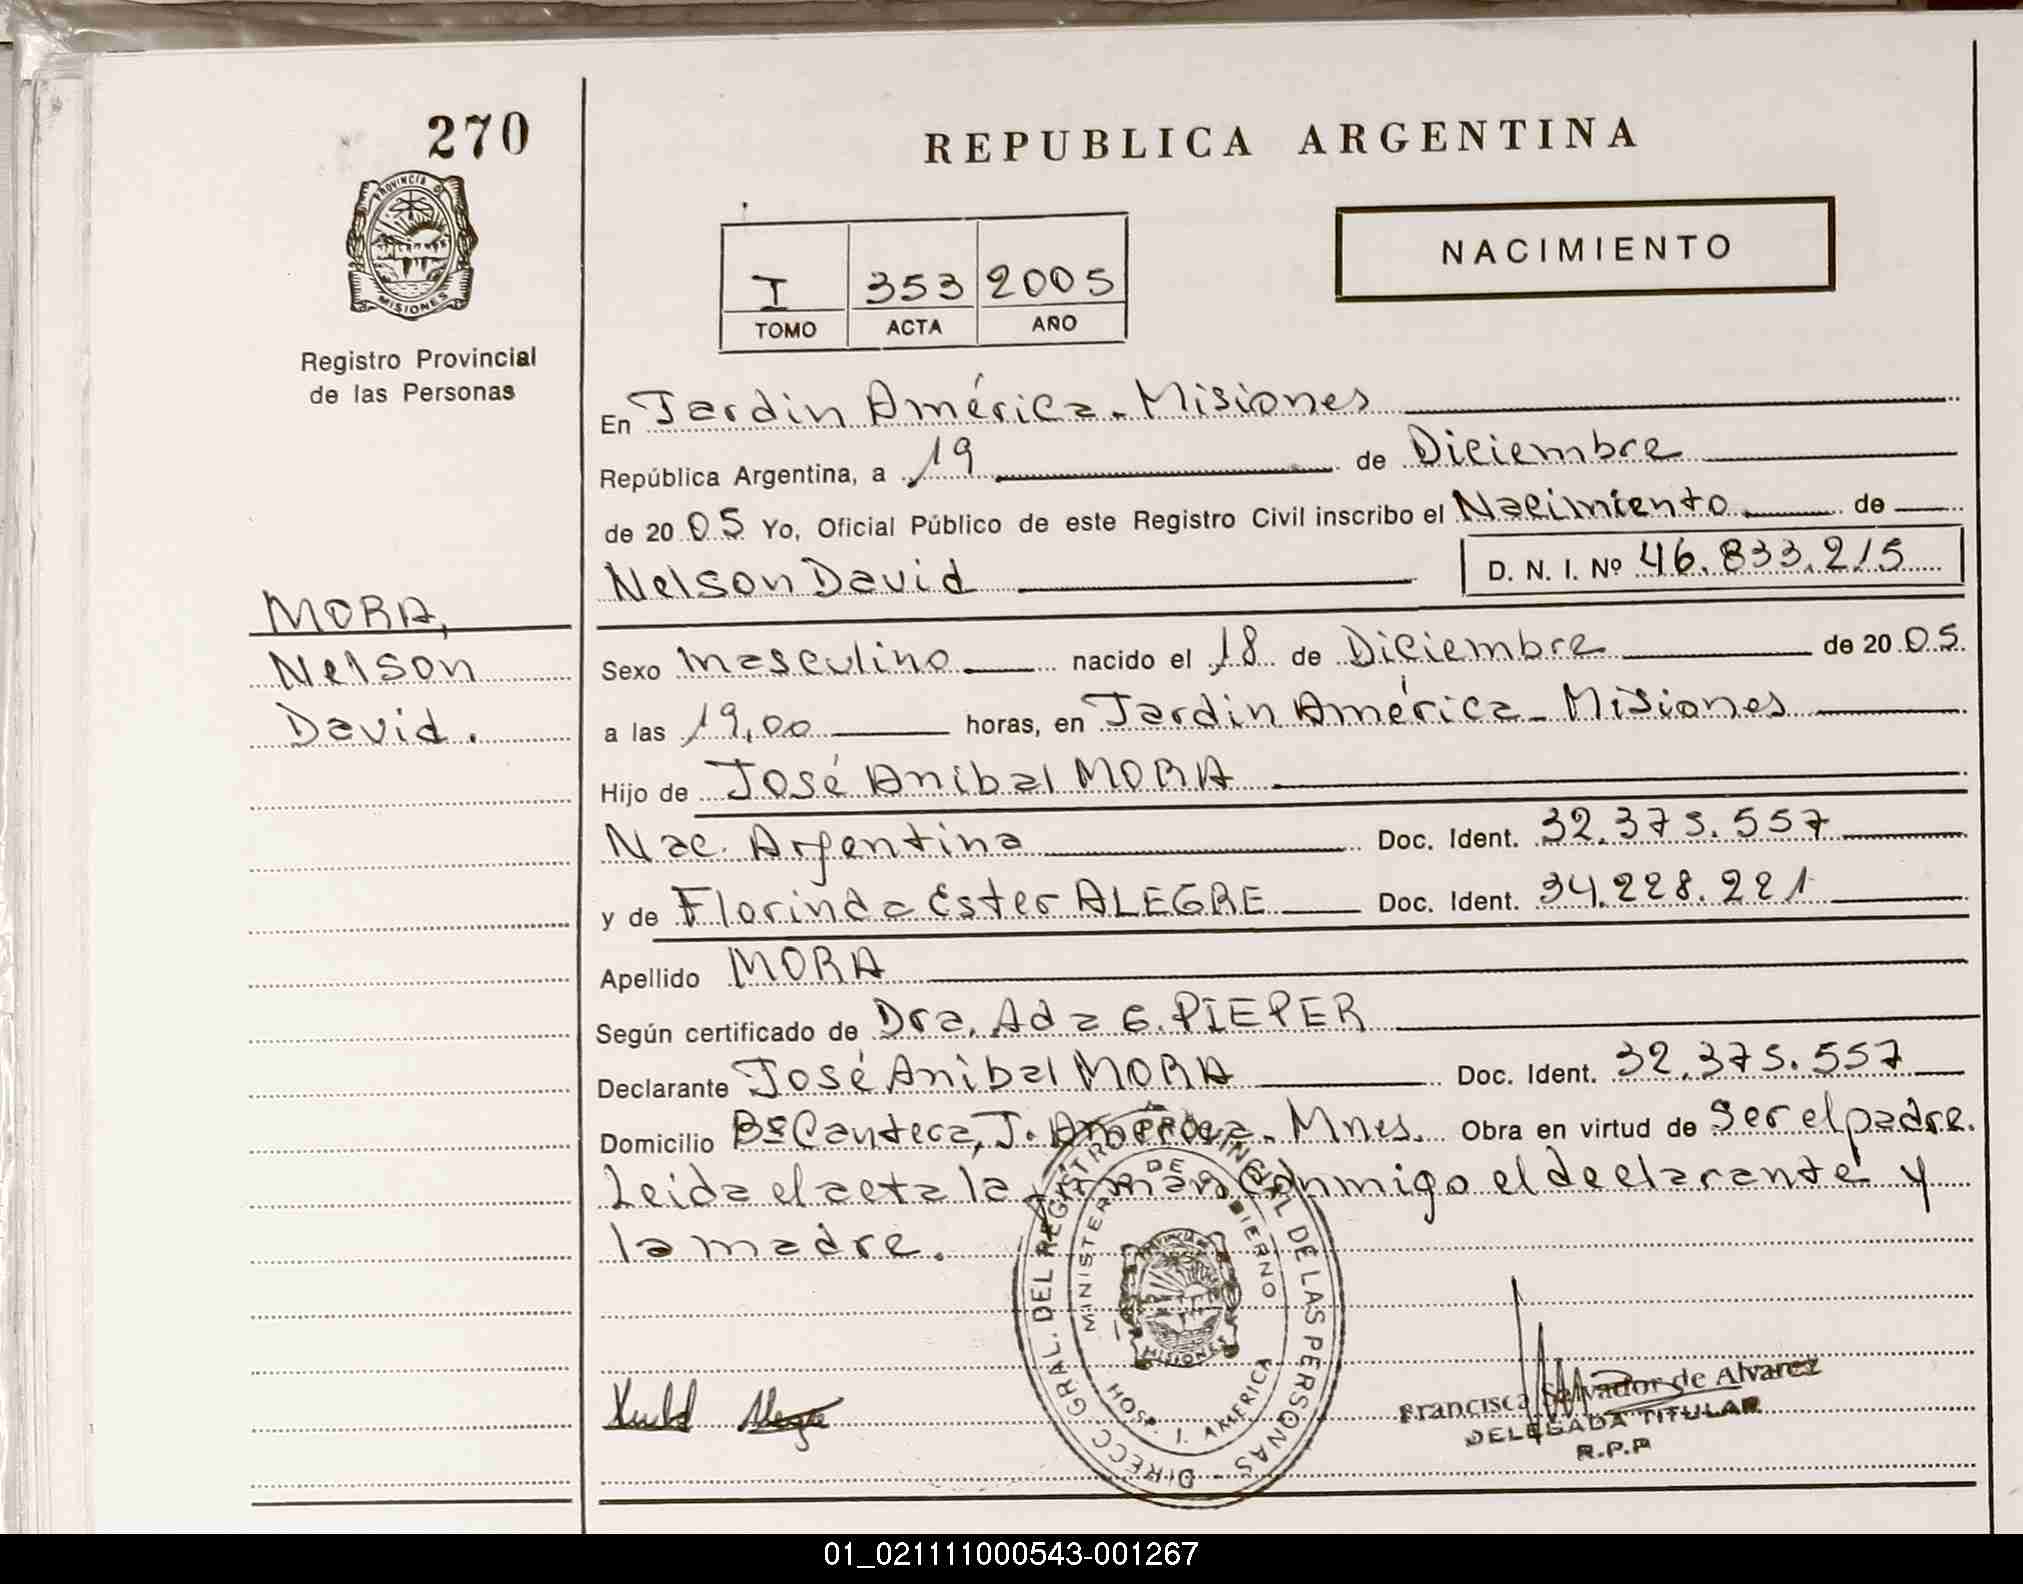 270
PROVINCIA DE
MISIONES
Registro Provincial
de las Personas
MORA,
Nelson
David.
REPUBLICA ARGENTINA
NACIMIENTO
I 353 2005
TOMO ACTA AÑO
En Jardin América - Misiones
República Argentina, a 19 de Diciembre
de 20 05 Yo, Oficial Público de este Registro Civil inscribo el Nacimiento de
Nelson David D. N. I. Nº 46.833.215
Sexo masculino nacido el 18 de Diciembre de 20 05.
a las 19,00 horas, en Jardin América - Misiones
Hijo de José Anibal MORA
Nac. Argentina Doc. Ident. 32.375.557
y de Florinda Ester ALEGRE Doc. Ident. 34.228.221
Apellido MORA
Según certificado de Dra. Ada G. PIEPER
Declarante José Anibal MORA Doc. Ident. 32.375.557
Domicilio Bº Cantera, J. América - Mnes. Obra en virtud de Ser el padre.
Leida el acta la firman conmigo el declarante y
la madre.
DIRECC GRAL. DEL REGISTRO PROVINCIAL DE LAS PERSONAS
MINISTERIO DE GOBIERNO
MISIONES
HOSP. J. AMERICA
Francisca Salvador de Alvarez
DELEGADA TITULAR
R.P.P
01_021111000543-001267